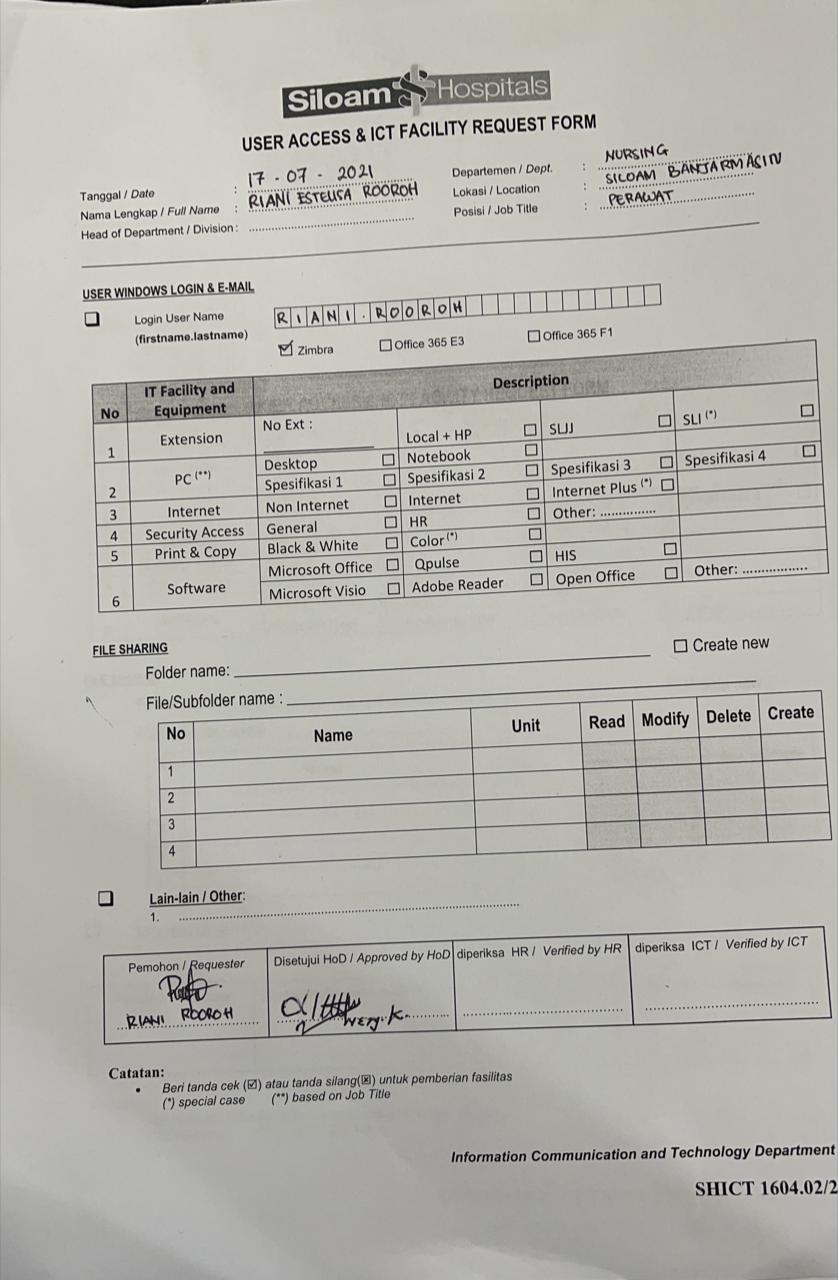 Siloam Hospitals
USER ACCESS & ICT FACILITY REQUEST FORM
Tanggal / Date : 17 - 07 - 2021
Nama Lengkap / Full Name : RIANI ESTELITA ROOROH
Head of Department / Division :
Departemen / Dept. : NURSING
Lokasi / Location : SILOAM BANJARMASIN
Posisi / Job Title : PERAWAT
USER WINDOWS LOGIN & E-MAIL
☐ Login User Name RIANI.ROOROH
(firstname.lastname)
☑ Zimbra ☐ Office 365 E3 ☐ Office 365 F1
No IT Facility and Equipment Description
1 Extension No Ext : Local + HP ☐ SLJJ ☐ SLI (*) ☐
2 PC (**) Desktop ☐ Notebook ☐
Spesifikasi 1 ☐ Spesifikasi 2 ☐ Spesifikasi 3 ☐ Spesifikasi 4 ☐
3 Internet Non Internet ☐ Internet ☐ Internet Plus (*) ☐
4 Security Access General ☐ HR ☐ Other: ...............
5 Print & Copy Black & White ☐ Color (*) ☐
6 Software Microsoft Office ☐ Qpulse ☐ HIS ☐
Microsoft Visio ☐ Adobe Reader ☐ Open Office ☐ Other: .................
FILE SHARING
Folder name: ☐ Create new
File/Subfolder name :
No Name Unit Read Modify Delete Create
1
2
3
4
☐ Lain-lain / Other:
1.
Pemohon / Requester
RIANI ROOROH
Disetujui HoD / Approved by HoD
diperiksa HR / Verified by HR
diperiksa ICT / Verified by ICT
Catatan:
• Beri tanda cek (☑) atau tanda silang(☒) untuk pemberian fasilitas
(*) special case (**) based on Job Title
Information Communication and Technology Department
SHICT 1604.02/2